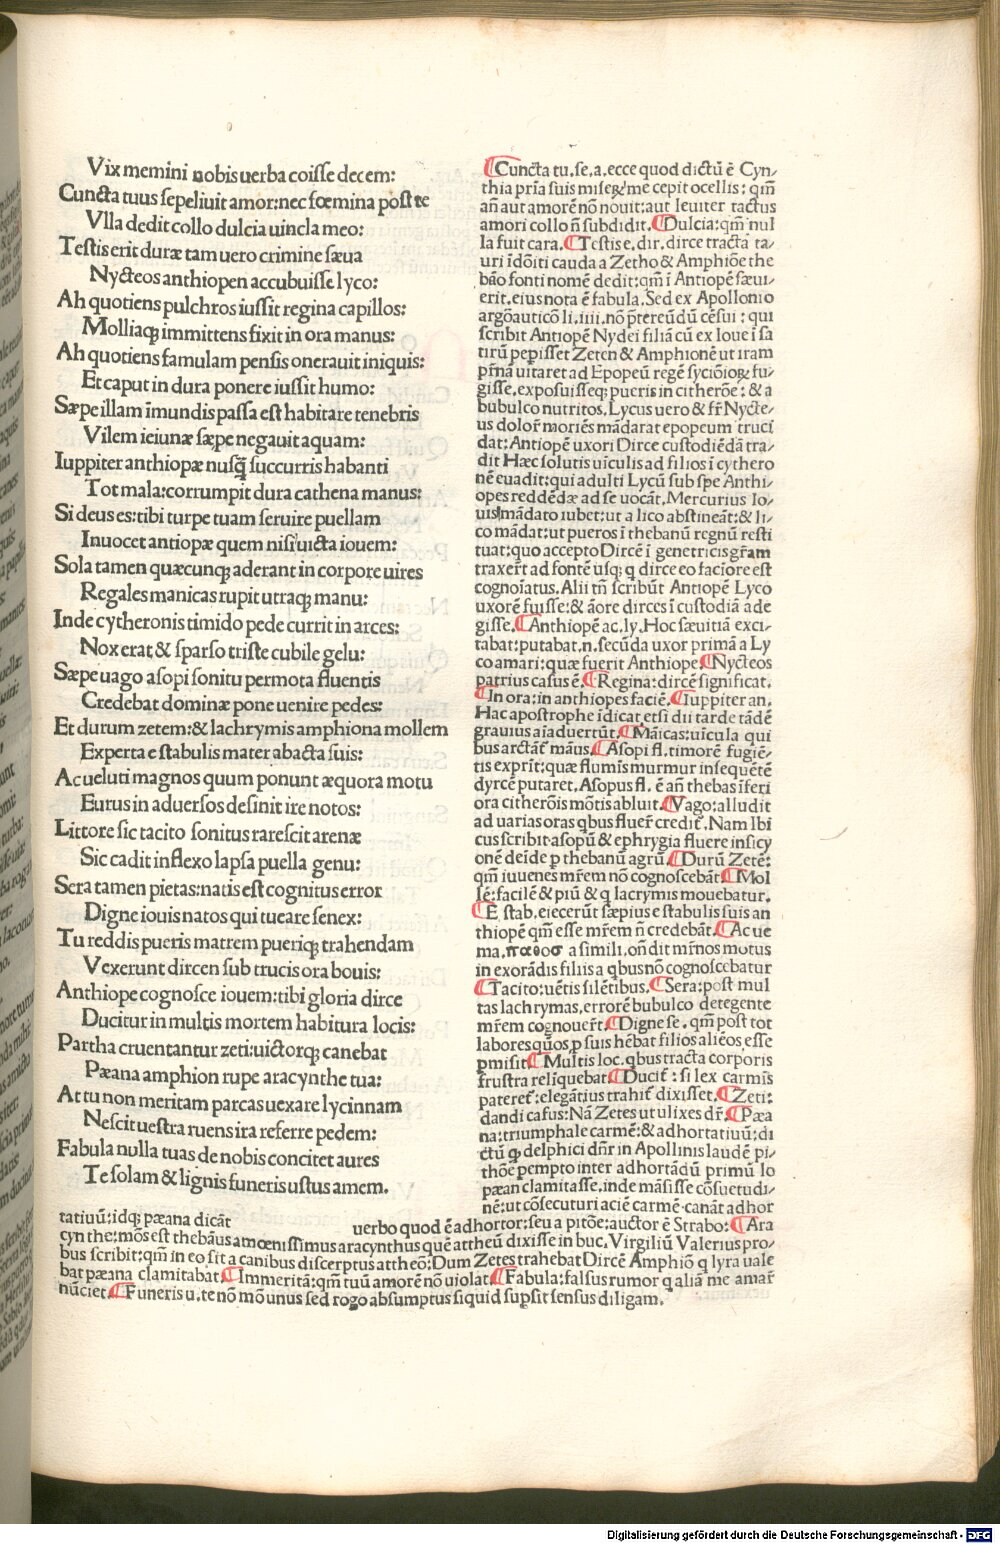 Vix memini nobis uerba coisse decem:
Cuncta tuus sepeliuit amor: nec foemina post te
Vlla dedit collo dulcia uincla meo:
Testis erit duræ tam uero crimine sæua
Nycteos anthiopen accubuisse lyco:
Ah quotiens pulchros iussit regina capillos:
Molliaqꝫ immittens fixit in ora manus:
Ah quotiens famulam pensis onerauit iniquis:
Et caput in dura ponere iussit humo:
Sæpe illam īmundis passa est habitare tenebris
Vilem ieiunæ sæpe negauit aquam:
Iuppiter anthiopæ nusq̄ succurris habanti
Tot mala: corrumpit dura cathena manus:
Si deus es: tibi turpe tuam seruire puellam
Inuocet antiopæ quem nisi uicta iouem:
Sola tamen quæcunqꝫ aderant in corpore uires
Regales manicas rupit utraqꝫ manu:
Inde cytheronis timido pede currit in arces:
Nox erat & sparso triste cubile gelu:
Sæpe uago asopi sonitu permota fluentis
Credebat dominæ pone uenire pedes:
Et durum zetem: & lachrymis amphiona mollem
Experta e stabulis mater abacta suis:
Ac ueluti magnos quum ponunt æquora motu
Eurus in aduersos desinit ire notos:
Littore sic tacito sonitus rarescit arenæ
Sic cadit inflexo lapsa puella genu:
Sera tamen pietas: natis est cognitus error
Digne iouis natos qui tueare senex:
Tu reddis pueris matrem pueriqꝫ trahendam
Vexerunt dircen sub trucis ora bouis:
Anthiope cognosce iouem: tibi gloria dirce
Ducitur in multis mortem habitura locis:
Partha cruentantur zeti: uictorqꝫ canebat
Pæana amphion rupe aracynthe tua:
At tu non meritam parcas uexare lycinnam
Nescit uestra ruens ira referre pedem:
Fabula nulla tuas de nobis concitet aures
Te solam & lignis funeris ustus amem.
¶Cuncta tu.se.a.ecce quod dictū ē Cyn-
thia prīa suis miseꝝ me cepit ocellis: qm̄
añ aut amorē nō nouit: aut leuiter tactus
amori collo ñ subdidit. ¶Dulcia: qm̄ nul
la fuit cara. ¶Testis e.dir.dirce tracta ta-
uri īdōiti cauda a Zetho & Amphiōe the
bāo fonti nomē dedit: qm̄ ī Antiopē sæui-
erit. eius nota ē fabula. Sed ex Apollonio
argōauticō li.iiii. nō p̄tereūdū cēsui: qui
scribit Antiopē Nydei filiā cū ex Ioue ī sa
tirū peꝑisset Zeten & Amphionē ut iram
pr̄nā uitaret ad Epopeū regē sycīoioꝝ fu-
gisse. exposuisseqꝫ pueris in citherōe: & a
bubulco nutritos. Lycus uero & fr̄ Nycte-
us dolor̄ moriēs mādarat epopeum truci
dat: Antiopē uxori Dirce custodiēdā tra-
dit Hæc solutis uīculis ad filios ī cythero
nē euadit: qui adulti Lycū sub spe Anthi-
opes reddēdæ ad se uocāt. Mercurius Io-
uis mādato iubet: ut a lico abstineāt: & li-
co mādat: ut pueros ī thebanū regnū resti
tuat: quo accepto Dircē ī genetricis gr̄am
traxer̄t ad fontē usqꝫ q dirce eo facīore est
cognoīatus. Alii tñ scribūt Antiopē Lyco
uxorē fuisse: & āore dirces ī custodiā ade
gisse. ¶Anthiopē ac.ly. Hoc sæuitiā exci-
tabat: putabat.n.secūda uxor primā a Ly
co amari: quæ fuerit Anthiope. ¶Nycteos
patrius casus ē. ¶Regina: dircē significat.
¶In ora: in anthiopes faciē. ¶Iuppiter an.
Hac apostrophe īdicat, etsi dii tarde tādē
grauius aīaduertūt. ¶Māicas: uīcula qui
bus arctāt̄ māus. ¶Asopi fl. timorē fugiē-
tis exprīt: quæ flumīs murmur īsequētē
dyrcē putaret. Asopus fl. ē añ thebas īferi
ora citherōis mōtis abluit. ¶Vago: alludit
ad uarias oras qbus fluer̄ credit̄. Nam Ibi
cus scribit asopū & ephrygia fluere in sicy
onē deīde ꝑ thebanū agrū. ¶Durū Zetē:
qm̄ iuuenes mr̄em nō cognoscebāt. ¶Mol
lē: facilē & piū & q lacrymis mouebatur.
¶E stab. eiecerūt sæpius e stabulis suis an
thiopē qm̄ esse mr̄em ñ credebāt. ¶Ac ue
ma. παθοσ a simili. oñdit mr̄nos motus
in exorādis filiis a qbus nō cognoscebatur
¶Tacito: uētis silētibus. ¶Sera: post mul
tas lachrymas, errorē bubulco detegente
mr̄em cognouer̄t. ¶Digne se. qm̄ post tot
labores quos ꝑ suis hēbat filios aliēos esse
ꝑmisit. ¶Multis loc. qbus tracta corporis
frustra relīquebat. ¶Ducit̄: si lex carmīs
pateret̄: elegātius trahit̄ dixisset. ¶Zeti:
dandi casus: Nā Zetes ut ulixes dr̄. ¶Pæa
na: triumphale carmē: & adhortatiuū: di
ctū q delphici dñr in Apollinis laudē pi-
thōe pempto inter adhortādū primū Io
pæan clamitasse. inde māsisse cōsuetudi-
nē: ut cōsecuturi aciē carmē canāt adhor
tatiuū: idqꝫ pæana dicāt uerbo quod ē adhortor: seu a pitōe: auctor ē Strabo: ¶Ara
cynthe: mōs est thebāus amœnissimus aracynthus quē attheū dixisse in buc. Virgiliū Valerius pro-
bus scribit: qm̄ in eo sit a canibus discerptus attheō: Dum Zetes trahebat Dircē Amphiō q lyra uale
bat pæana clamitabat. ¶Immeritā: qm̄ tuū amorē nō uiolat. ¶Fabula: falsus rumor q aliā me amar̄
nūciet. ¶Funeris u. te nō mō unus sed rogo absumptus siquid supsit sensus diligam.
Digitalisierung gefördert durch die Deutsche Forschungsgemeinschaft - DFG